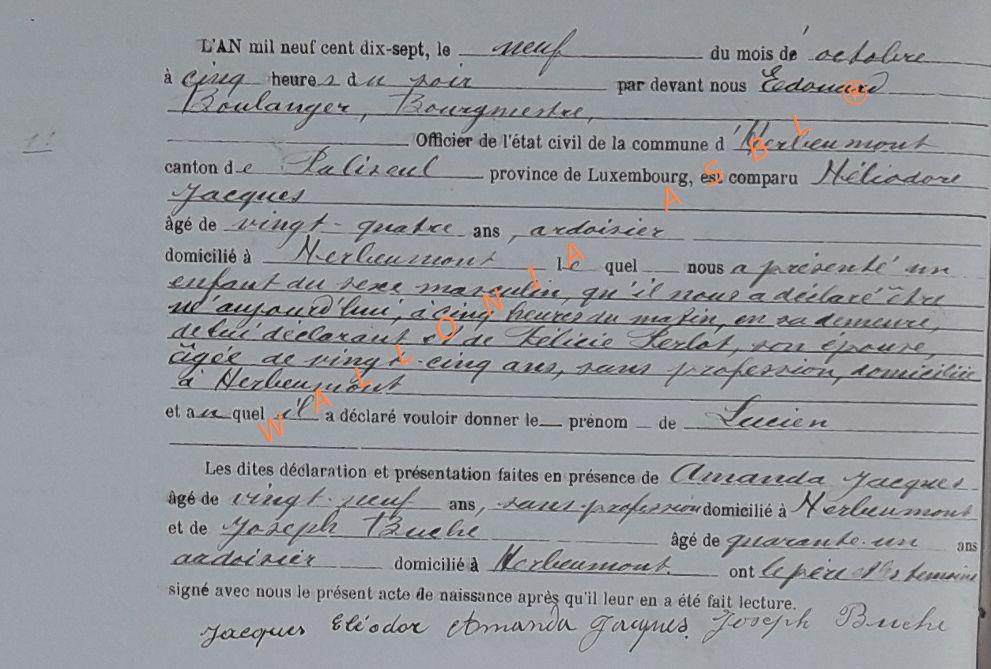 L'AN mil neuf cent dix-sept, le neuf du mois de octobre
à cinq heures du soir par devant nous Edouard
Boulanger, Bourgmestre,
1:
Officier de l'état civil de la commune d'Herbeumont
canton de Paliseul province de Luxembourg, est comparu Héliodore
Jacques
âgé de vingt-quatre ans, ardoisier
domicilié à Herbeumont lequel nous a présenté un
enfant du sexe masculin, qu'il nous a déclaré être
né aujourd'hui, à cinq heures du matin, en sa demeure,
de lui déclarant et de Félicie Perlot, son épouse,
âgée de vingt-cinq ans, sans profession, domiciliée
à Herbeumont
et auquel il a déclaré vouloir donner le prénom de Lucien
Les dites déclaration et présentation faites en présence de Amanda Jacques
âgé de vingt-neuf ans, sans profession domicilié à Herbeumont
et de Joseph Buche âgé de quarante-un ans
ardoisier domicilié à Herbeumont ont le père et les témoins
signé avec nous le présent acte de naissance après qu'il leur en a été fait lecture.
Jacques Eléodor Amanda Jacques Joseph Buche
WALLONIA ASBL ®